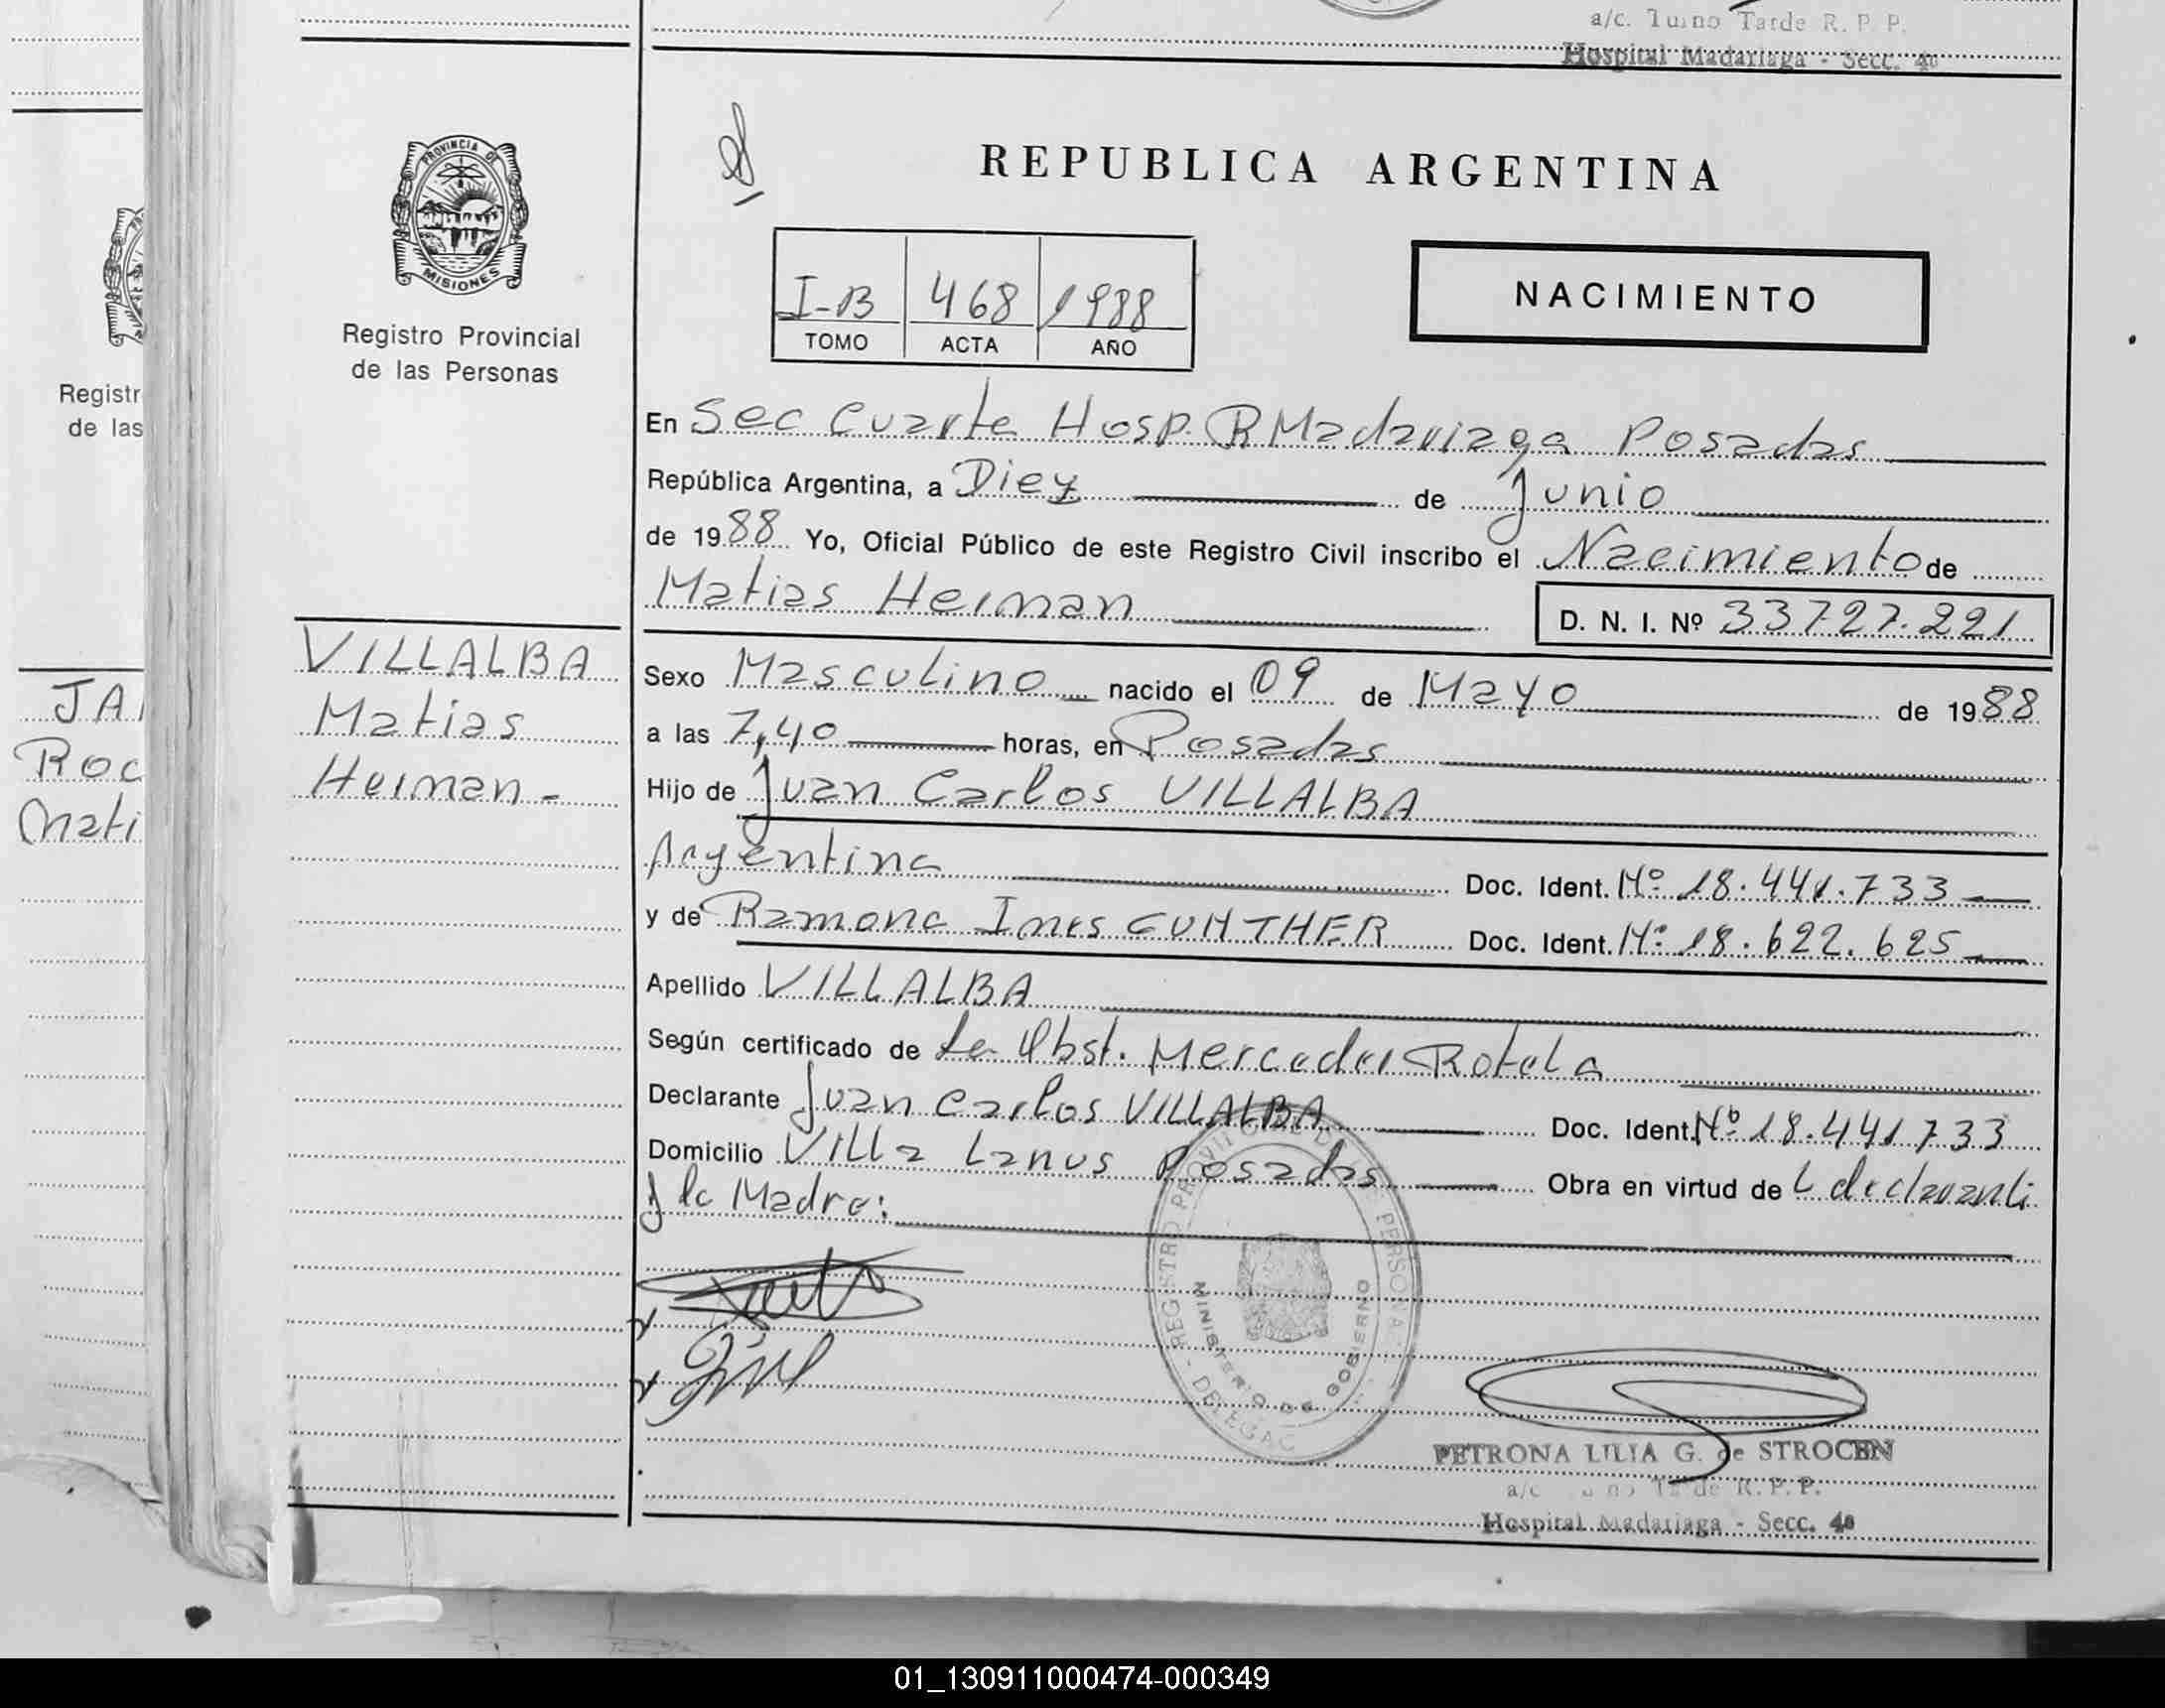 a/c. Turno Tarde R. P. P.
Hospital Madariaga - Secc. 4a
PROVINCIA DE
MISIONES
Registro Provincial
de las Personas
REPUBLICA ARGENTINA
I-B 468 1988
TOMO ACTA AÑO
NACIMIENTO
Registr
de las
En Sec Cuarta Hosp. R Madariaga Posadas
República Argentina, a Diez de Junio
de 1988 Yo, Oficial Público de este Registro Civil inscribo el Nacimiento de
Matias Herman
D. N. I. Nº 33727.221
VILLALBA
Matias
Herman -
JA
Roc
Mati
Sexo Masculino nacido el 09 de Mayo de 1988
a las 7,40 horas, en Posadas
Hijo de Juan Carlos VILLALBA
Argentina Doc. Ident. Nº 18.441.733
y de Ramona Ines GUNTHER Doc. Ident. Nº 18.622.625
Apellido VILLALBA
Según certificado de La Obst. Mercedes Rotela
Declarante Juan Carlos VILLALBA Doc. Ident. Nº 18.441733
Domicilio Villa Lanus Posadas Obra en virtud de L declaranti
y la Madre:
MINISTERIO DE GOBIERNO
PETRONA LILIA G. de STROCEN
a/c Turno Tarde R. P. P.
Hospital Madariaga - Secc. 4a
01_130911000474-000349